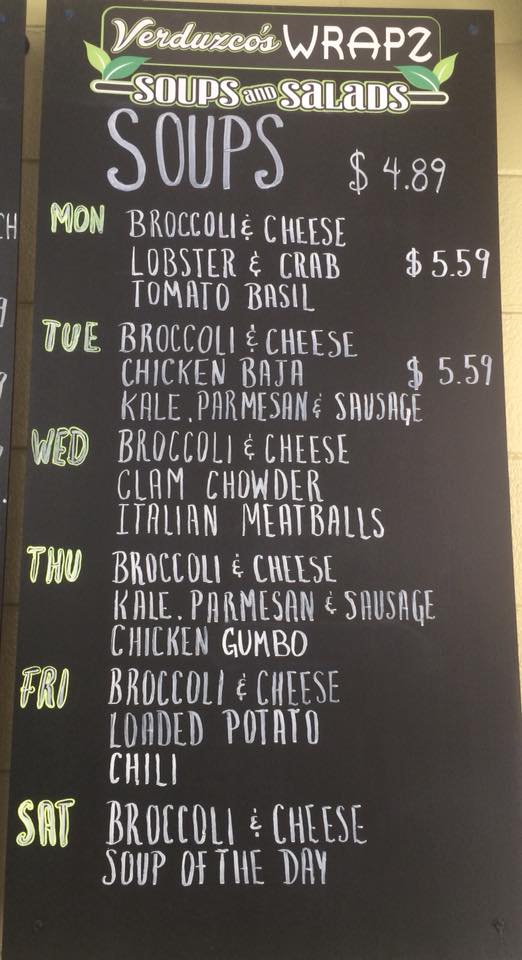 Verduzco's WRAPZ
SOUPS and SALADS
SOUPS $ 4.89
MON BROCCOLI & CHEESE
LOBSTER & CRAB $ 5.59
TOMATO BASIL
TUE BROCCOLI & CHEESE
CHICKEN BAJA $ 5.59
KALE, PARMESAN & SAUSAGE
WED BROCCOLI & CHEESE
CLAM CHOWDER
ITALIAN MEATBALLS
THU BROCCOLI & CHEESE
KALE, PARMESAN & SAUSAGE
CHICKEN GUMBO
FRI BROCCOLI & CHEESE
LOADED POTATO
CHILI
SAT BROCCOLI & CHEESE
SOUP OF THE DAY